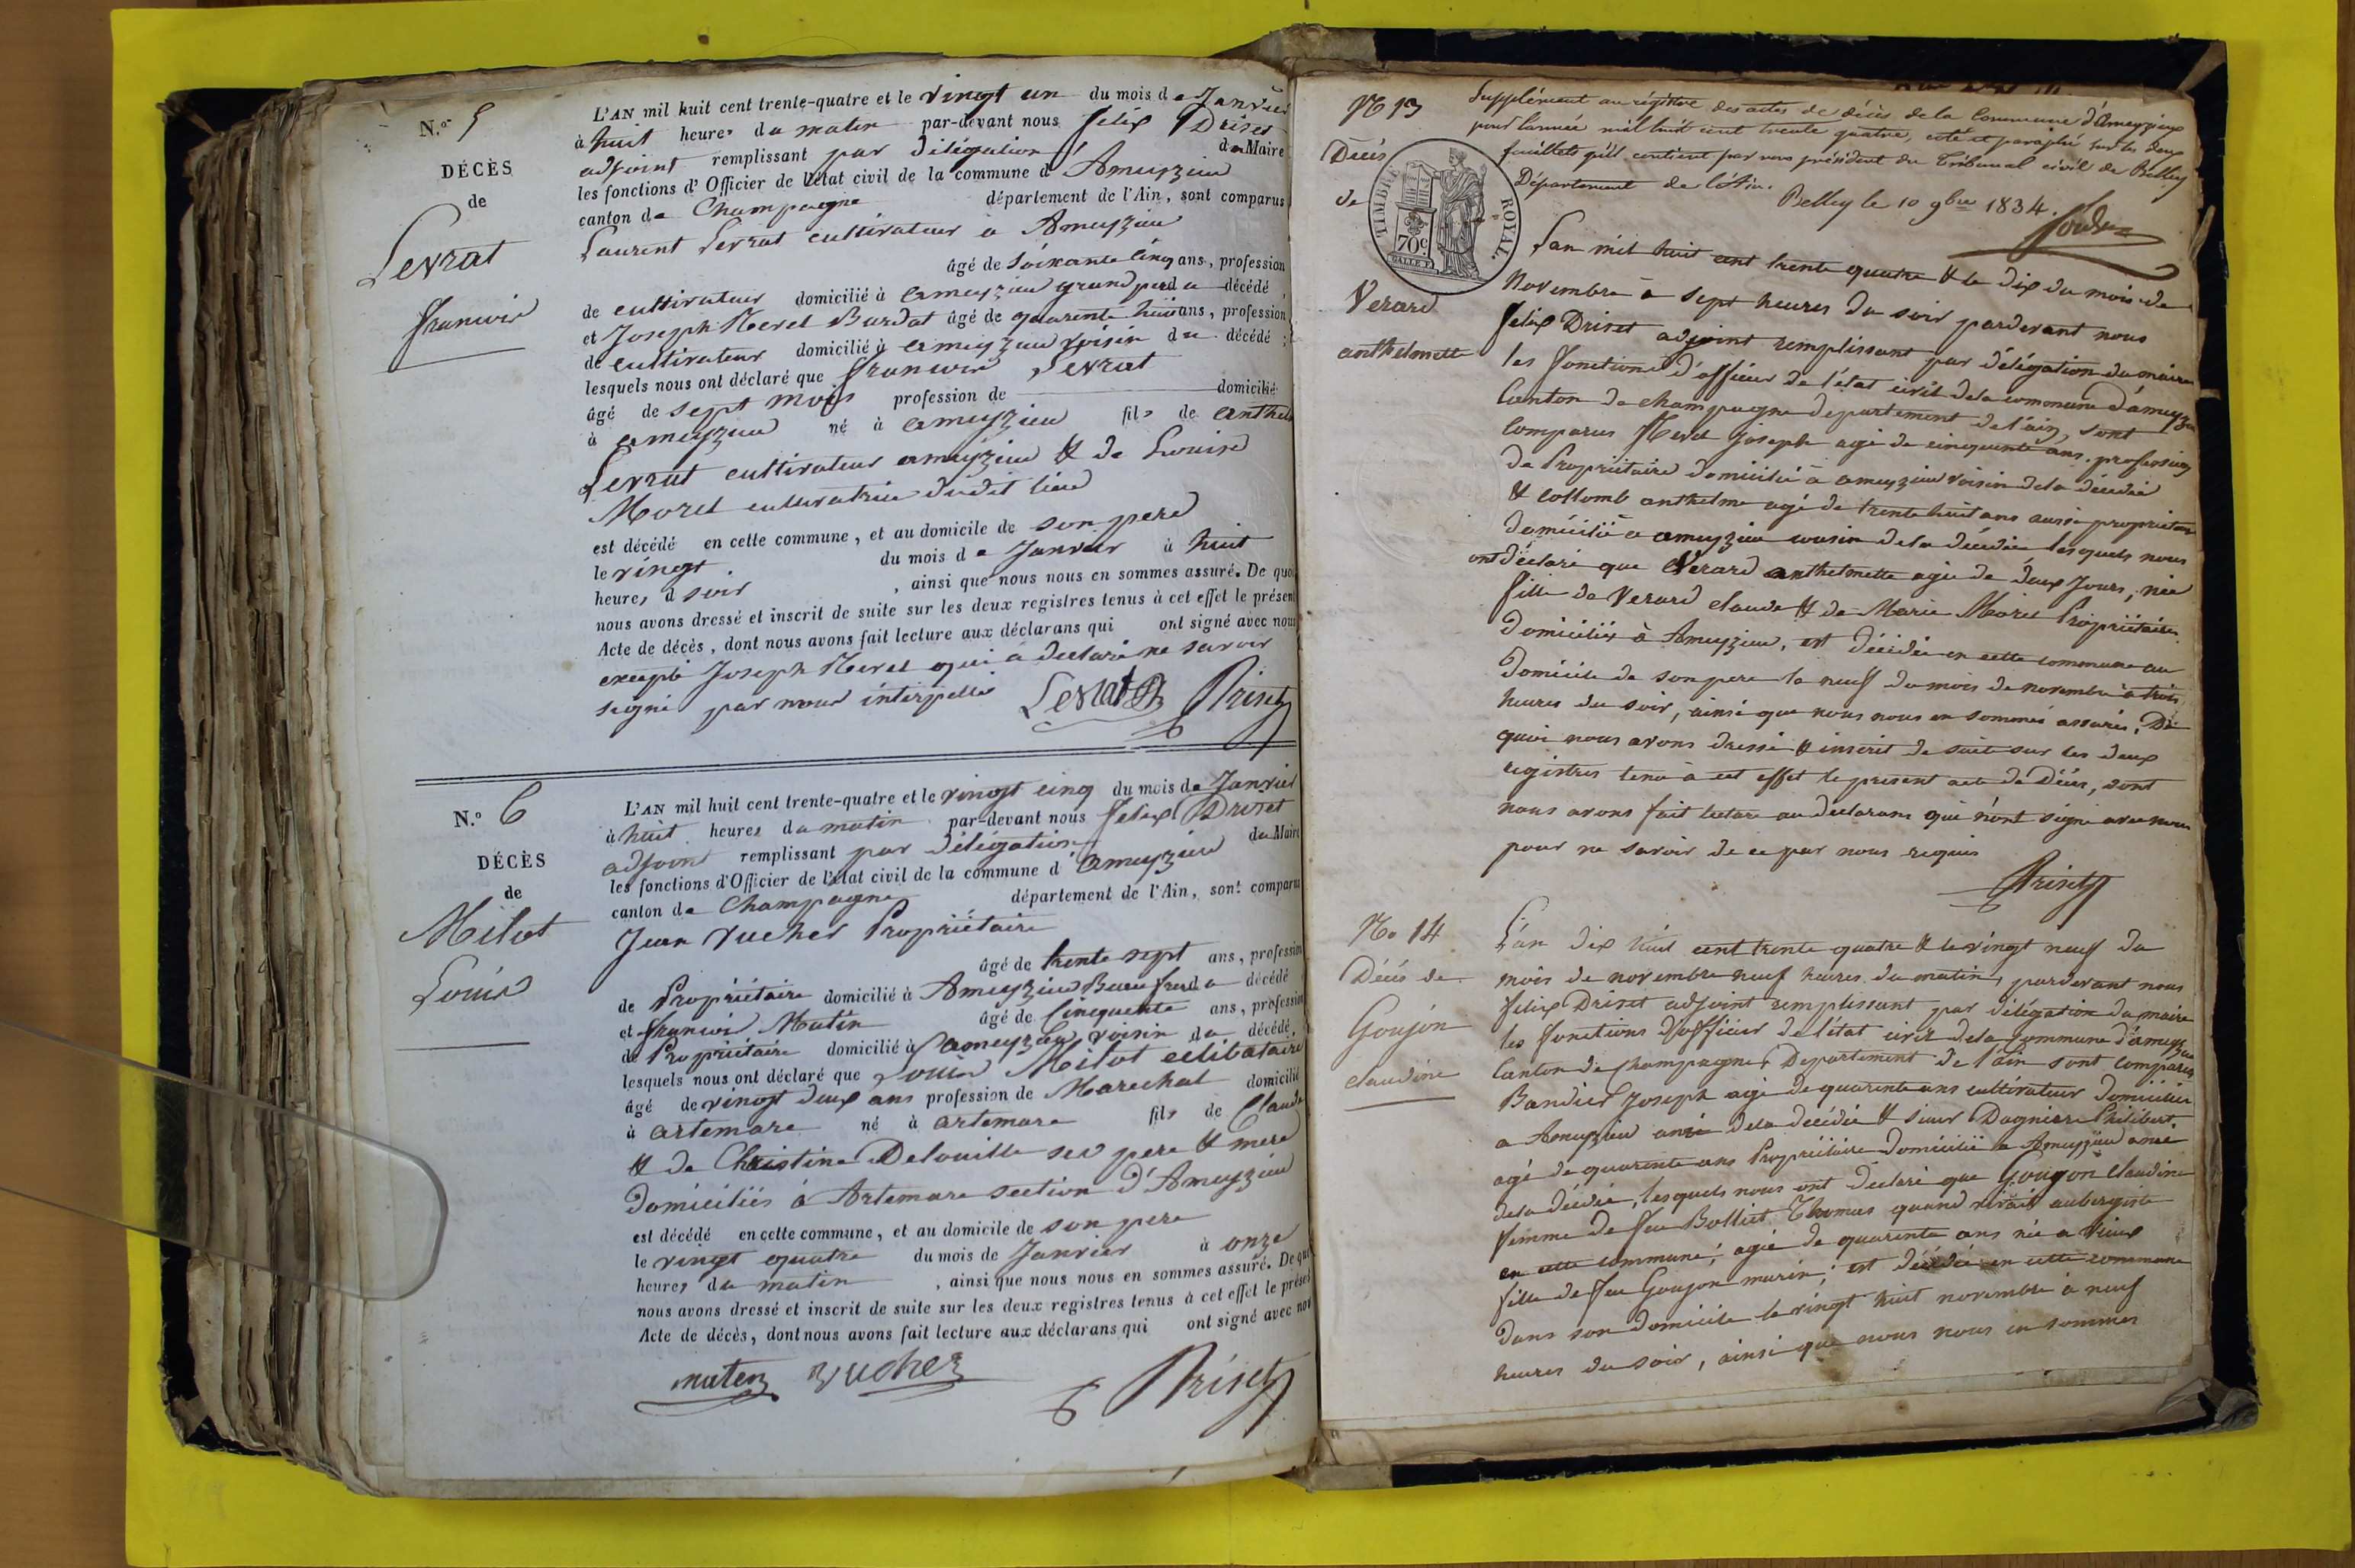 N.o 5
DÉCÈS
de
Levrat
francois
L'AN mil huit cent trente-quatre et le vingt un du mois de Janvier
à huit heures du matin par-devant nous felix Driset
adjoint remplissant par délégation du Maire
les fonctions d'Officier de l'état civil de la commune d'Ameyzieu
canton de Champagne département de l'Ain, sont comparus
Laurent Levrat cultivateur à Ameyzieu
âgé de soixante cinq ans, profession
de cultivateur domicilié à ameyzieu grand pere du décédé
et Joseph Mevel Burdat âgé de quarente huit ans, profession
de cultivateur domicilié à ameyzieu voisin du décédé ;
lesquels nous ont déclaré que francois Levrat
âgé de sept mois profession de domicilié
à ameyzieu né à ameyzieu fils de anthel
Levrat cultivateur ameyzieu & de Louise
Moret cultivatrice dudit lieu
est décédé en cette commune, et au domicile de son pere
le vingt du mois de Janvier à huit
heures d soir , ainsi que nous nous en sommes assuré. De quoi
nous avons dressé et inscrit de suite sur les deux registres tenus à cet effet le présent
Acte de décès, dont nous avons fait lecture aux déclarans qui ont signé avec nous
excepté Joseph Mevel qui a declaré ne savoir
signé par nous interpellé Levrat Driset
N.o 6
DÉCÈS
de
Milot
Louis
L'AN mil huit cent trente-quatre et le vingt cinq du mois de Janvier
à huit heures du matin par-devant nous felix Driset
adjoint remplissant par délégation du Maire
les fonctions d'Officier de l'état civil de la commune d'ameyzieu
canton de Champagne département de l'Ain, sont comparus
Jean Vucher Propriétaire
âgé de trente sept ans, profession
de Propriétaire domicilié à Ameyzieu Beau frere du décédé
et francois Matin âgé de Cinquente ans, profession
de Propriétaire domicilié à ameyzieu voisin du décédé,
lesquels nous ont déclaré que Louis Milot celibataire
âgé de vingt deux ans profession de Marechal domicilié
à artemare né à artemare fils de Claude
& de Christine Delouille ses pere & mere
domiciliés à Artemare section d'Ameyzieu
est décédé en cette commune, et au domicile de son pere
le vingt quatre du mois de Janvier à onze
heures du matin , ainsi que nous nous en sommes assuré. De quoi
nous avons dressé et inscrit de suite sur les deux registres tenus à cet effet le présent
Acte de décès, dont nous avons fait lecture aux déclarans qui ont signé avec nous
maten Vucher Driset
No 13
Décès
de
Verard
anthelmette
TIMBRE ROYAL.
70c.
Supplément au régistre des actes de décès de la Commune d'Ameyzieux
pour l'année mil huit cent trente quatre, coté et paraphé sur les deux
feuillets qu'il contient par nous président du Tribunal civil de Belley
Département de l'Ain.
Belley le 10 9bre 1834.
L'an mil huit cent trente quatre & le dix du mois de
Novembre à sept heures du soir pardevant nous
felix Driset adjoint remplissant par délégation du maire
les fonctions d'officier de l'état civil de la commune d'ameyzieu
Canton de champagne departement de l'ain, sont
Comparus Mevel Joseph agé de cinquente ans, profession
de Propriétaire domicilié à ameyzieu voisin de la décédée
& collomb anthelme agé de trente huit ans aussi propriétaire
domicilié à ameyzieu cousin de la decedée lesquels nous
ont déclaré que Verard anthelmette agée de deux Jours, née
fille de Verard claude & de Marie Moret Propriétaires
domiciliés à Ameyzieu, est décédée en cette commune au
domicile de son pere le neuf du mois de novembre à trois
heures du soir, ainsi que nous nous en sommes assurés, De
quoi nous avons dressé & inscrit de suite sur les deux
registres tenu à cet effet le present acte de Décès, dont
nous avons fait lecture au declarans qui n'ont signé avec nous
pour ne savoir de ce par nous requis
Driset
No 14
Décès de
Goujon
claudine
L'an dix huit cent trente quatre & le vingt neuf du
mois de novembre neuf heures du matin, pardevant nous
felix Driset adjoint remplissant par délégation du maire
les fonctions d'officier de l'état civil de la commune d'ameyzieu
Canton de Champagne Departement de l'ain sont comparus
Bandier Joseph agé de quarente ans cultivateur domicilié
a Ameyzieu ami de la decédée & sieur Dagniere Philibert
agé de quarente ans Propriétaire domicilié à Ameyzieu amie
de la décédée, lesquels nous ont declaré que Goujon claudine
femme de feu Bolliet Thomas quand vivait aubergiste
en cette commune, agée de quarente ans née à Vieux
fille de feu Goujon marin, est décédée en cette commune
dans son domicile le vingt huit novembre à neuf
heures du soir, ainsi que nous nous en sommes